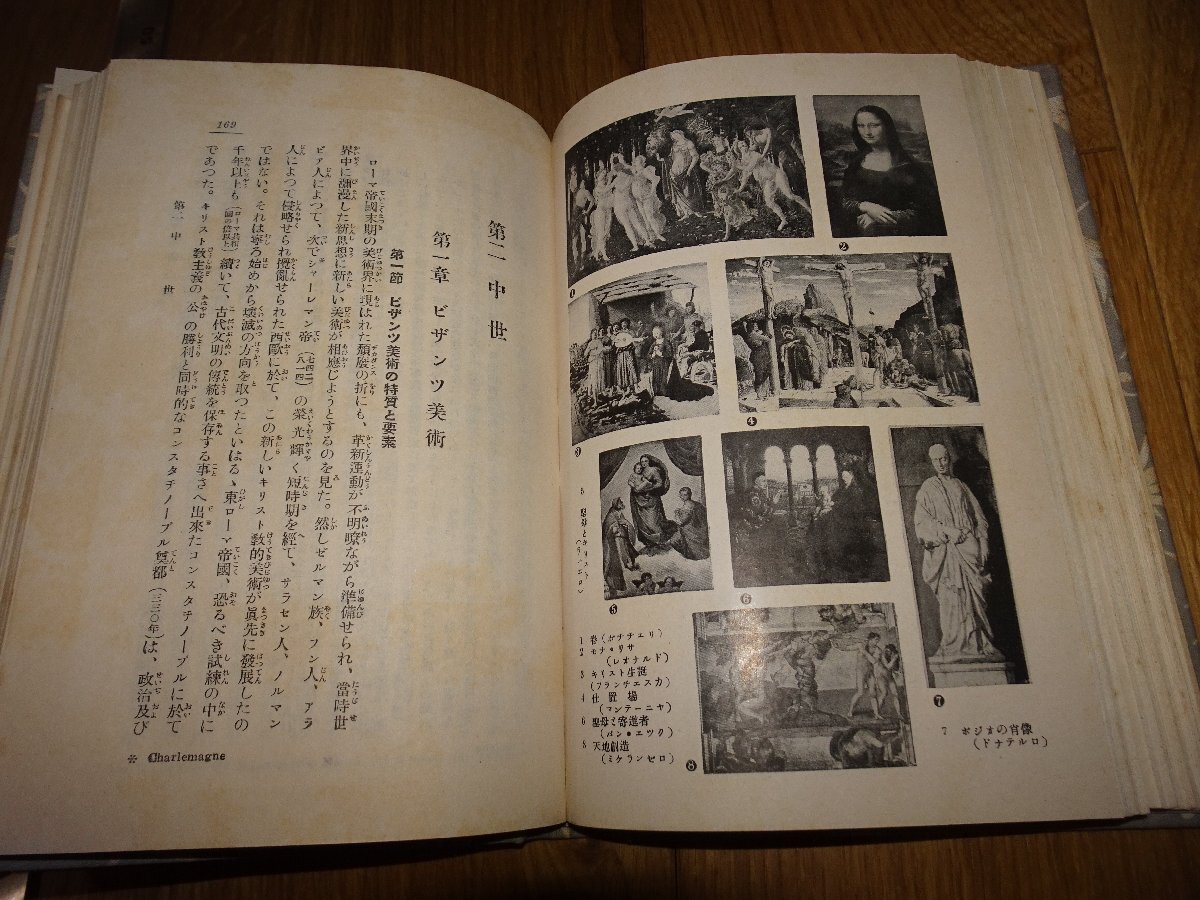 第二 中世
第一章 ビザンツ美術
第一節 ビザンツ美術の特質と要素
ローマ帝國末期の美術界に現はれた頽廢の折にも、革新運動が不明瞭ながら準備せられ、當時世
界中に瀰漫した新思想に新しい美術が相應じようとするのを見た。然しゼルマン族、フン人、アラ
ビア人によつて、次でシャーレマン帝(七四二—八一四)の榮光輝く短時期を經て、サラセン人、ノルマン
人によつて侵略せられ攪亂せられた西歐に於て、この新しいキリスト敎的美術が眞先に發展したの
ではない。それは寧ろ始めから壞滅の方向を取つたといはるゝ東ローマ帝國、恐るべき試練の中に
千年以上も續いて、古代文明の傳統を保存する事さへ出來たコンスタチノープルに於て
であつた。キリスト敎主義の公の勝利と同時的なコンスタチノープル奠都(三三〇年)は、政治及び
第二 中世
169
* Charlemagne
1
2
3
4
5
6
7
8
5 聖母とキリスト
(ラファエロ)
1 春(ボチチエリ)
2 モナ・リサ
(レオナルド)
3 キリスト生誕
(フランチエスカ)
4 仕置場
(マンテーニヤ)
6 聖母と寄進者
(バン・エツク)
8 天地創造
(ミケランゼロ)
7 ポジオの肖像
(ドナテルロ)